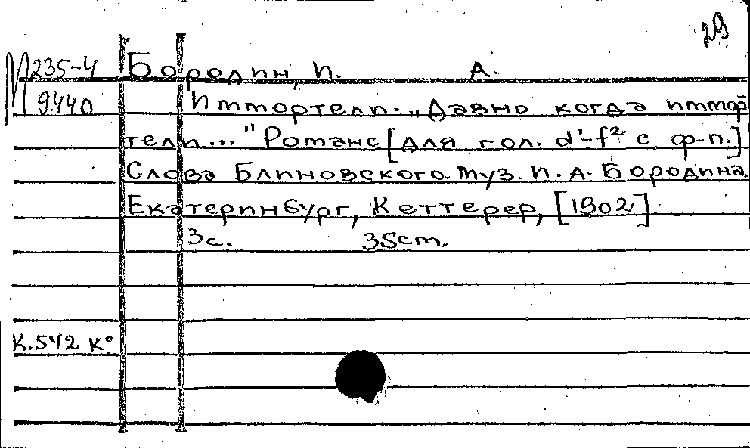 29
М 235-4 Бородин, И. А.
9440 Иммортели. „Давно когда иммор
тели..." Романс [для гол. d¹-f² с ф-п.]
Слова Блиновского. Муз. И. А. Бородина.
Екатеринбург, Кеттерер, [1902]
3с. 35cm.
К.542 К°